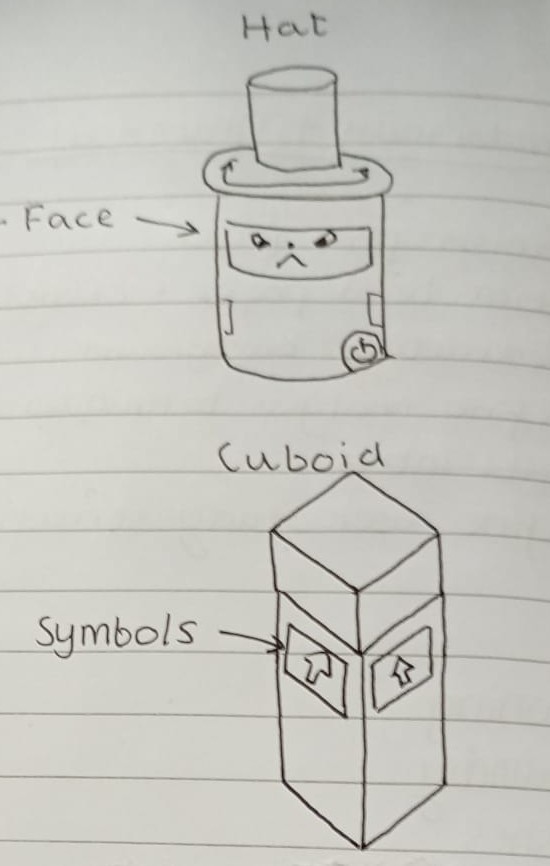 Hat
Face
Cuboid
Symbols